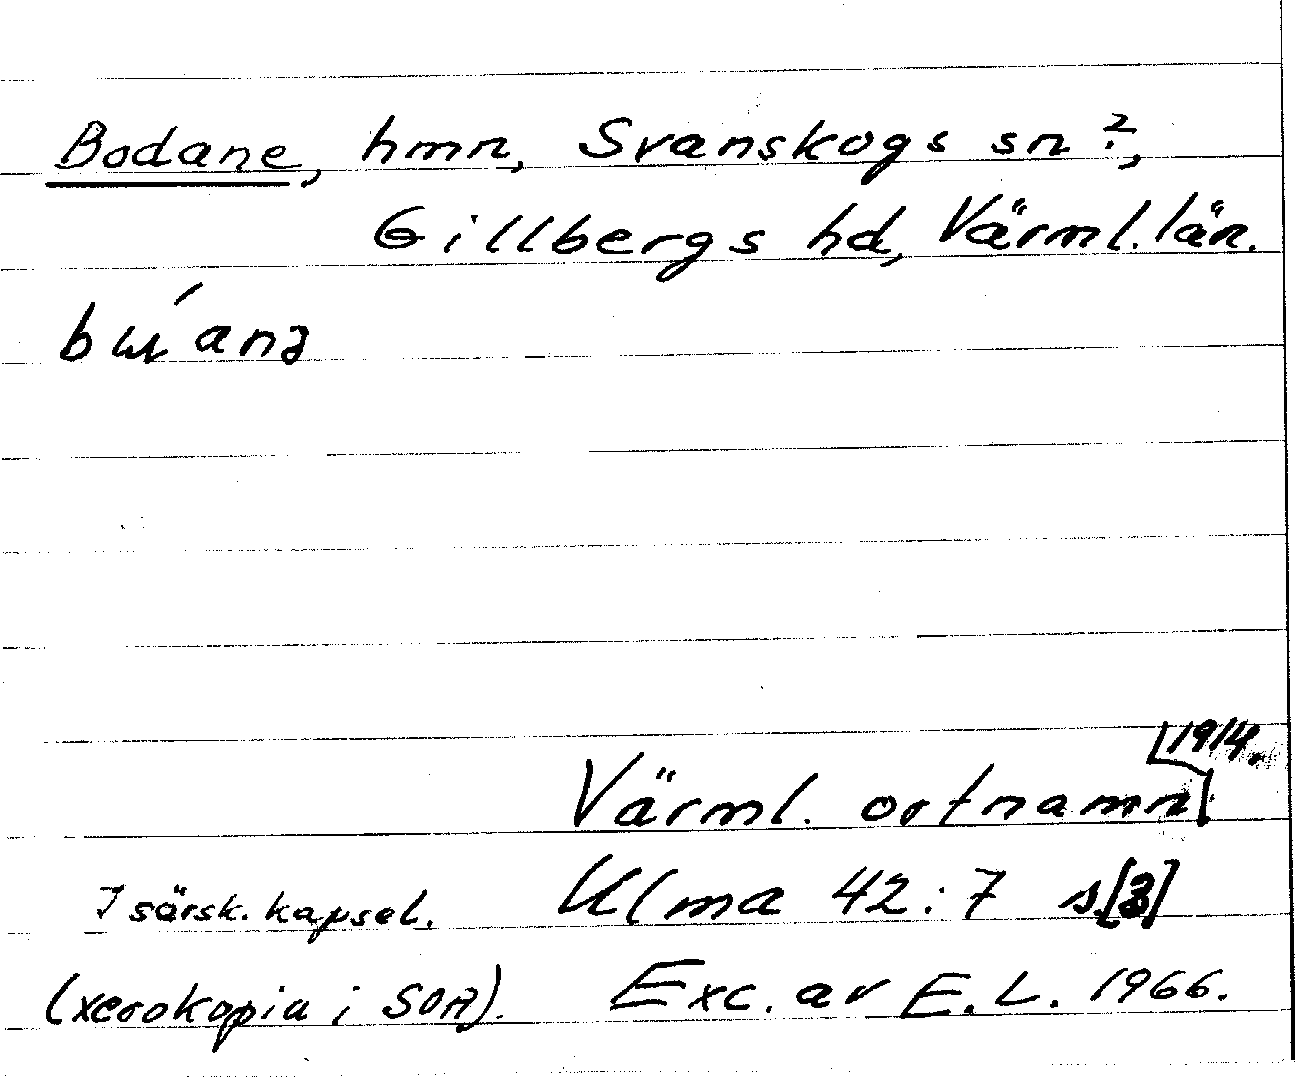 Bodane, hmn, Svanskogs sn?,
Gillbergs hd, Värml. län.
1914.
Värml. ortnamn
I särsk. kapsel. Ulma 42:7 s.[3]
(xerokopia i SOA). Exc. av E.L. 1966.